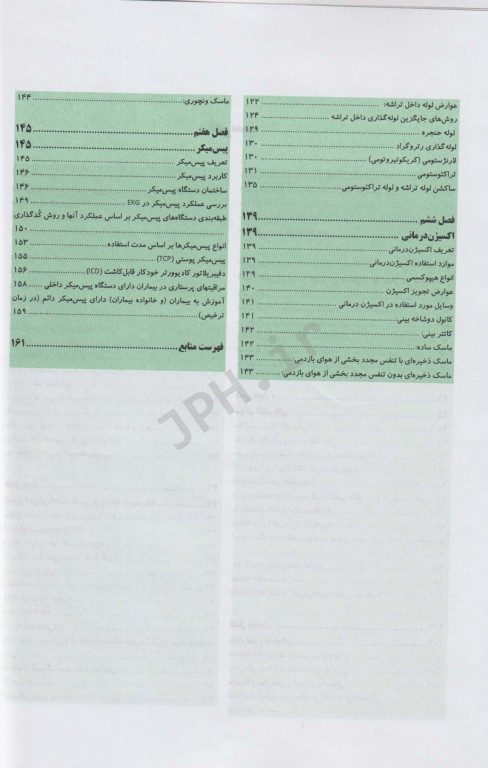 عوارض لوله داخل تراشه: ۱۲۲
روش‌های جایگزین لوله‌گذاری داخل تراشه ۱۲۴
لوله حنجره ۱۲۹
لوله‌گذاری رتروگراد ۱۳۰
لارنژستومی (کریکوتیروتومی) ۱۳۰
تراکئوستومی ۱۳۱
ساکشن لوله تراشه و لوله تراکئوستومی ۱۳۵
فصل ششم ۱۳۹
اکسیژن‌درمانی ۱۳۹
تعریف اکسیژن‌درمانی ۱۳۹
موارد استفاده اکسیژن‌درمانی ۱۳۹
انواع هیپوکسمی ۱۲۹
عوارض تجویز اکسیژن ۱۴۰
وسایل مورد استفاده در اکسیژن درمانی ۱۴۱
کانول دوشاخه بینی: ۱۴۱
کاتتر بینی: ۱۴۲
ماسک ساده: ۱۴۲
ماسک ذخیره‌ای با تنفس مجدد بخشی از هوای بازدمی: ۱۴۳
ماسک ذخیره‌ای بدون تنفس مجدد بخشی از هوای بازدمی: ۱۴۳
ماسک ونچوری: ۱۴۴
فصل هفتم ۱۴۵
پیس‌میکر ۱۴۵
تعریف پیس‌میکر ۱۴۵
کاربرد پیس‌میکر ۱۴۶
ساختمان دستگاه پیس‌میکر ۱۴۶
بررسی عملکرد پیس‌میکر در EKG ۱۴۹
طبقه‌بندی دستگاه‌های پیس‌میکر بر اساس عملکرد آنها و روش کُدگذاری
۱۵۰
انواع پیس‌میکرها بر اساس مدت استفاده ۱۵۳
پیس‌میکر پوستی (TCP) ۱۵۵
دفیبریلاتور کاردیوورتر خودکار قابل‌کاشت (ICD) ۱۵۶
مراقبتهای پرستاری در بیماران دارای دستگاه پیس‌میکر داخلی ۱۵۸
آموزش به بیماران (و خانواده بیماران) دارای پیس‌میکر دائم (در زمان
ترخیص) ۱۵۹
فهرست منابع ۱۶۱
JPH.ir